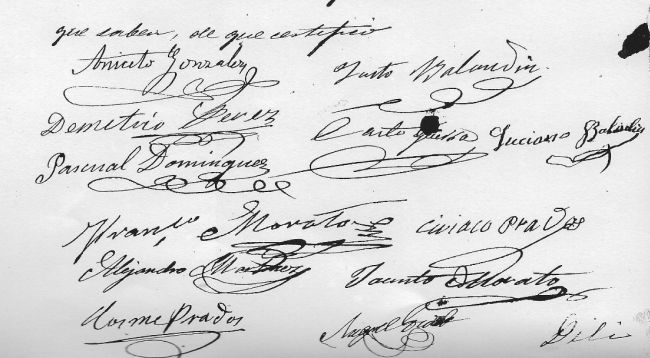 que saben, de que certifico
Aniceto Gonzalez Justo Balandin
Demetrio Perez Carlo Luciano Balandin
Pascual Dominguez
Franco Morato Ciriaco Prados
Alejandro Martinez Jacinto Morato
Cosme Prados Miguel